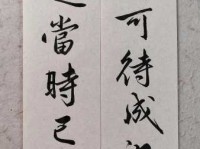 可待成
當時已